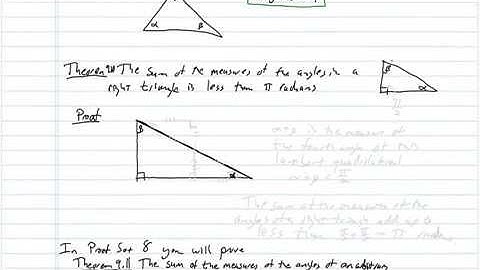 α β
Theorem 9.11 The sum of the measures of the angles in a
right triangle is less than π radians
β α
π
2
Proof
β α
α+β is the measure of
the fourth angle of this
Lambert quadrilateral
α+β < π/2
The sum of the measures of the
angles of a right triangle add up to
less than π/2 + π/2 = π radians
In Proof Set 8 you will prove
Theorem 9.11 The sum of the measures of the angles of an arbitrary